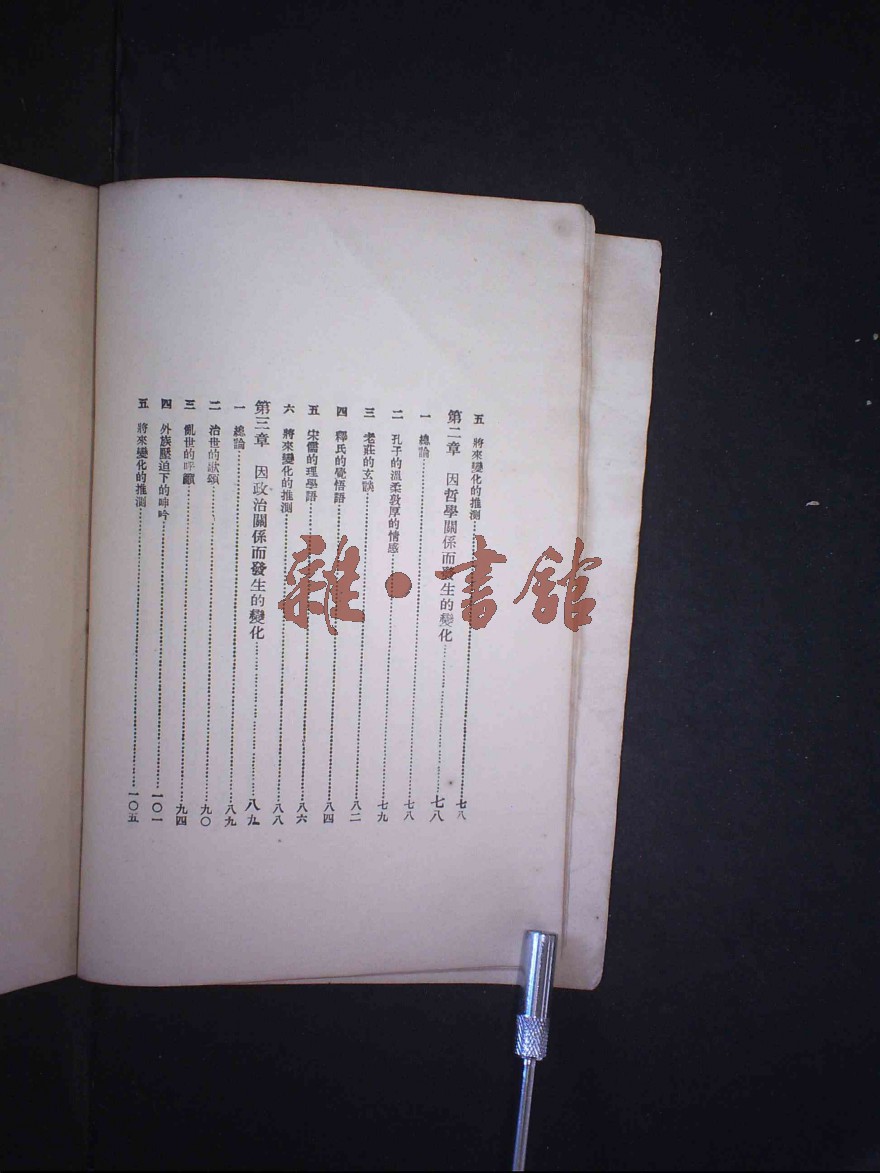 五 將來變化的推測……七八
第二章 因哲學關係而發生的變化……七八
一 總論……七八
二 孔子的溫柔敦厚的情感……七九
三 老莊的玄談……八二
四 釋氏的覺悟語……八四
五 宋儒的理學語……八六
六 將來變化的推測……八八
第三章 因政治關係而發生的變化……八九
一 總論……八九
二 治世的歌頌……九〇
三 亂世的呼籲……九四
四 外族壓迫下的呻吟……一〇一
五 將來變化的推測……一〇五
雜·書館